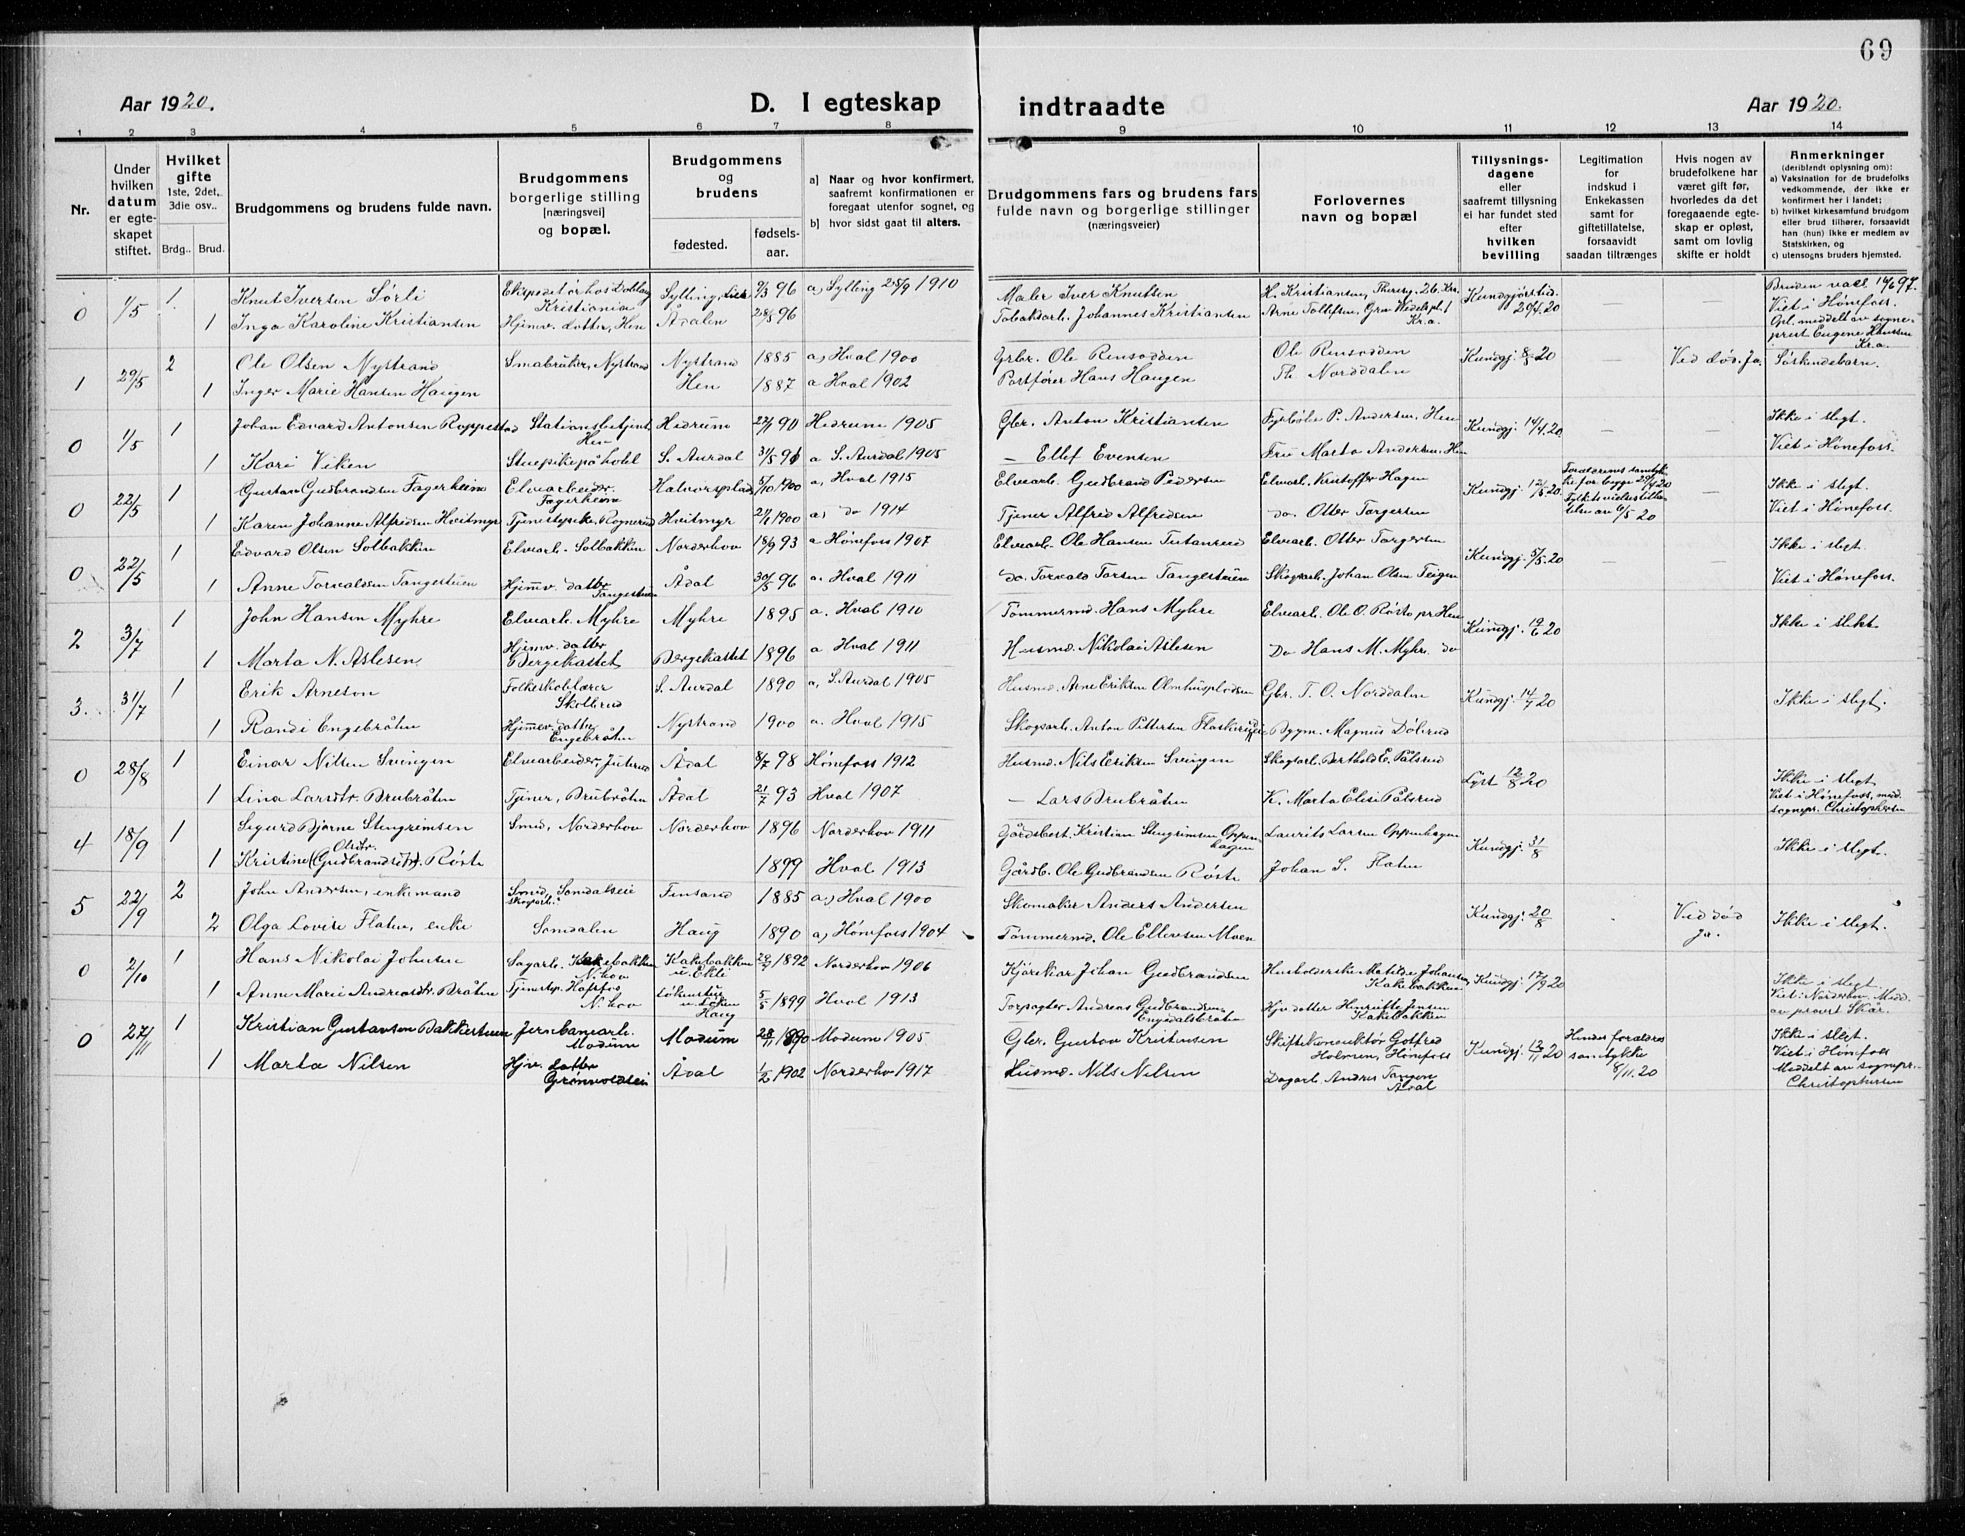 69
Aar 1920. D. I egteskap indtraadte Aar 1920.
1 2 3 4 5 6 7 8 9 10 11 12 13 14
Nr.
Under hvilken datum er egteskapet stiftet.
Hvilket gifte
1ste, 2det, 3die osv..
Brdg.. Brud.
Brudgommens og brudens fulde navn.
Brudgommens borgerlige stilling [næringsvei] og bopæl.
Brudgommens og brudens
fødested. fødselsaar.
a] Naar og hvor konfirmert, saafremt konfirmationen er foregaat utenfor sognet, og
b] hvor sidst gaat til alters.
Brudgommens fars og brudens fars fulde navn og borgerlige stillinger (næringsveier)
Forlovernes navn og bopæl
Tillysningsdagene eller saafremt tillysning ei har fundet sted efter hvilken bevilling
Legitimation for indskud i Enkekassen samt for giftetillatelse, forsaavidt saadan tiltrænges
Hvis nogen av brudefolkene har været gift før, hvorledes da det foregaaende egteskap er opløst, samt om lovlig skifte er holdt
Anmerkninger
(deriblandt oplysning om):
a) Vaksination for de brudefolks vedkommende, der ikke er konfirmert her i landet;
b) hvilket kirkesamfund brudgom eller brud tilhører, forsaavidt han (hun) ikke er medlem av Statskirken, og
c) utensogns bruders hjemsted.
0 1/5 1 Knut Iversen Sørli Kristiania Sylling, Lier 96 a) Sylling 25/9 1910 Maler Iver Knutsen H. Kristiansen, Theresg. 26. Kra. 29/4.20 — — Bruden vacc. 14/6 97.
1 Inga Karoline Kristiansen Hjemv. datter, Hen Ådalen 28/5 96 Tobaksarb. Johannes Kristiansen Arne Tollefsen, Grev Wedelspl. 1 Kra. Viet i Hønefoss. meddelt av sogneprest Eugene Hanssen Kra.
1 29/5 2 Ole Olsen Nystrand Småbruker, Nystrand Nystrand 1885 a) Hval 1900 Grbr. Ole Rensodden Ole Rensodden Kundgj. 8/5 20 — Ved død. Ja. Søskindebarn.
1 Inger Marie Hansen Haugen Hen 1887 a Hval 1902 Postfører Hans Haugen Th. Norddalen
0 1/5 1 Johan Edvard Antonsen Roppestad Stationsbetjent Hen Hedrum 90 Hedrum 1905 Gbr. Anton Kristiansen P. Andersen, Hen Kundgj. 14/4.20 — — Ikke i slegt.
1 Kari Viken Stuepike på hotel S. Aurdal 31/5 91 a S. Aurdal 1905 — Ellef Evensen Fru Marta Andersen, Hen Viet i Hønefoss.
0 22/5 1 Gustav Gudbrandsen Fagerheim Elvearbeider. Fagerheim Halvorsplads 5/10 1900 a, Hval 1915 Elvearb. Gudbrand Pedersen Elvearb. Kristoffer Hagen Kundgj. 12/5 20 Forældrenes samtykke for begge 29/4 20 Ikke i slegt.
1 Karen Johanne Alfredsen Hvitmyr Tjenestepike. Rognerud Hvitmyr 21/1 1900 a) do 1914 Tjener Alfred Alfredsen do. Otter Torgersen 6/5 20 Viet i Hønefoss.
0 22/5 1 Edvard Olsen Solbakken Elvearb. Solbakken Norderhov 18/9 93 a Hønefoss 1907 Elvearb. Ole Hansen Tutanrud Elvearb. Otter Torgersen Kundgj. 5/5. 20 — — Ikke i slegt.
1 Anne Torvaldsen Tangestuen Hjemv. datter Tangestuen Ådal 30/5 96 a. Hval 1911 do. Torvald Torsen Tangestuen Skogsarb. Johan Olsen Teigen Viet i Hønefoss.
2 3/7 1 John Hansen Myhre Elvearb. Myhre Myhre 1895 a. Hval 1910 Tømmermd. Hans Myhre Elvearb. Ole O. Røste pr Hen Kundgj. 19/6 20 Ikke i slekt.
1 Marta N. Aslesen Hjemv. datter Bergekastet Bergekastet 1896 a Hval 1911 Husmd. Nikolai Aslesen Do Hans M. Myhr. do
3. 31/7 1 Erik Arneson Folkeskolelærer Skollerud S. Aurdal 1890 a, S. Aurdal 1905 Husmd. Arne Eriksen Olmhusplodsen Gbr. T. O. Norddalen Kundgj. 14/7 20 Ikke i slegt.
1 Randi Engebråten Hjemmev. datter Engebråten Nystrand 1900 a. Hval 1915 Skogsarb. Anton Pettersen Bygm. Magnus Dølerud
0 28/8 1 Einar Nilsen Svingen Elvearbeider, Juterud Ådal 8/7 98 Hønefoss 1912 Husmd. Nils Eriksen Svingen Skogsarb. Berthold E. Pålsrud Lyst 12/8 20 Ikke i slegt.
1 Lina Larsdtr. Brubråten Tjener, Brubråten Ådal 21/7 93 Hval 1907 — Lars Brubråten K. Marta Elise Pålsrud Viet i Hønefoss, medd. sognepr. Christophersen
4 18/9 1 Sigurd Bjarne Stengrimsen Smed, Norderhov Norderhov 1896 Norderhov 1911 Gårdsbest. Kristian Stengrimsen Oppenhagen Laurits Larsen Oppenhagen Kundgj. 31/8 Ikke i slegt.
1 Kristine (Gudbrandsdtr) Olsdtr. Røste 1899 Hval 1913 Gårdb. Ole Gudbrandsen Røste Johan S. Flaten
5 22/9 2 John Andersen, enkemand Smed, Somdalseie skogarb. Finsand 1885 a) Hval 1900 Skomaker Anders Andersen Kundgj. 20/8 Ved død Ja. Ikke i slegt.
2 Olga Lovise Flaten, enke Somdalen Haug 1890 a) Hønefoss 1904 Tømmermd. Ole Ellevsen Moen
0 2/10 1 Hans Nikolai Johnsen Sagarb. Kakebakken N.hov Kakebakken u. Ekli 1892 Norderhov 1906 Kjørekar Johan Gudbrandsen Husholderske Matilde Johansen Kakebakken Kundgj. 17/9 20 Ikke i slegt
1 Anne Marie Andreasdtr. Bråten Tjenestep. Hofsfos N.hov Haug 5/5 1899 Hval 1913 Torpagter Andreas Gudbrandsen Engedalsbråten Hjv. datter Henriette Jensen Kakebakken Viet i Norderhov. Medd. av provst Skår.
0 27/11 1 Kristian Gustavsen Bakkestuen Jernbanearb. Modum Modum 28/11 1890 Modum 1905 Gbr. Gustav Kristensen Gotfred Holmen, Hønefoss Kundgj. 13/11 20 Hendes forældres samtykke 8/11.20 Ikke i slegt.
1 Marta Nilsen Hjv. datter Grønvoldseie Ådal 1/2 1902 Norderhov 1917 Husmd. Nils Nilsen Dagarb. Andres Tangen Ådal Viet i Hønefoss Meddelt av sognepr. Christophersen